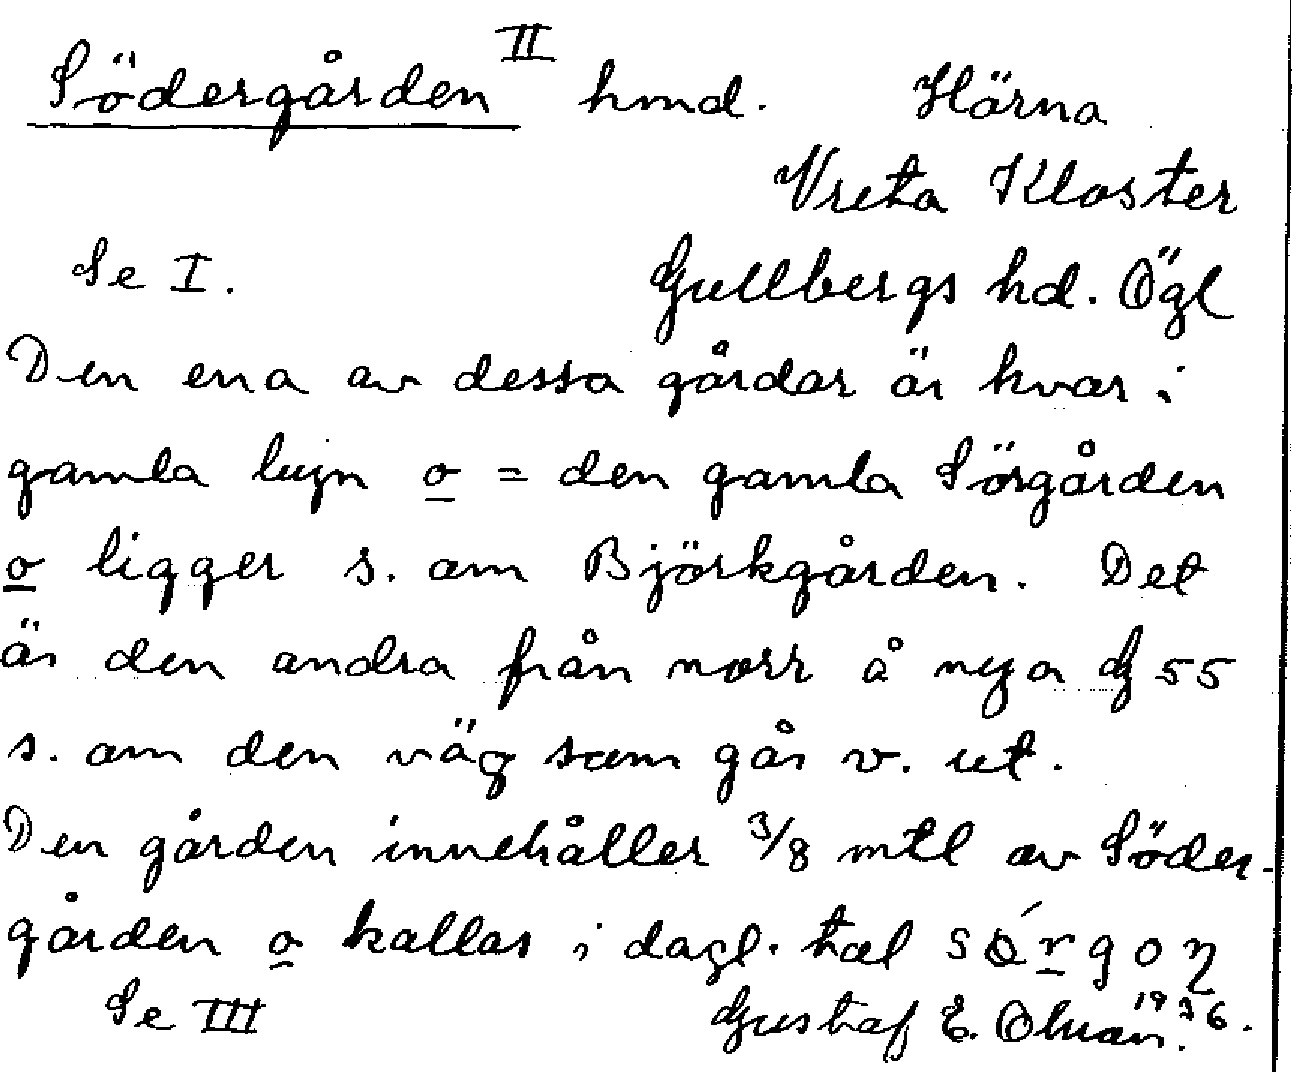 Södergården II hmd. Härna
Vreta Kloster
Se I. Gullbergs hd. Ögl
Den ena av dessa gårdar är kvar i
gamla byn o = den gamla Sörgården
o ligger s. om Björkgården. Det
är den andra från norr å nya G 55
s. om den väg som går v. ut.
Den gården innehåller 3/8 mtl av Söder-
gården o kallas i dagl. tal
Se III Gustaf E. 1936.